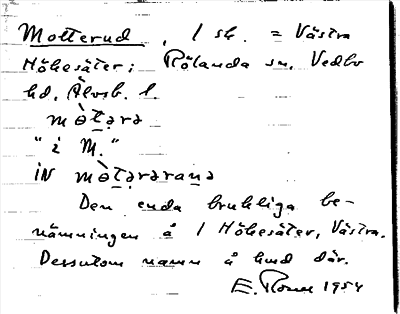 Motterud, 1 sk. = Västra
Hökesäter; Rölanda sn. Vedbo
hd. Älvsb. l.
mòt̲ərə
"i M."
iN mòt̲ərərənə
Den enda brukliga be-
nämningen å 1 Hökesäter, Västra.
Dessutom namn å hmd där.
E. 1954